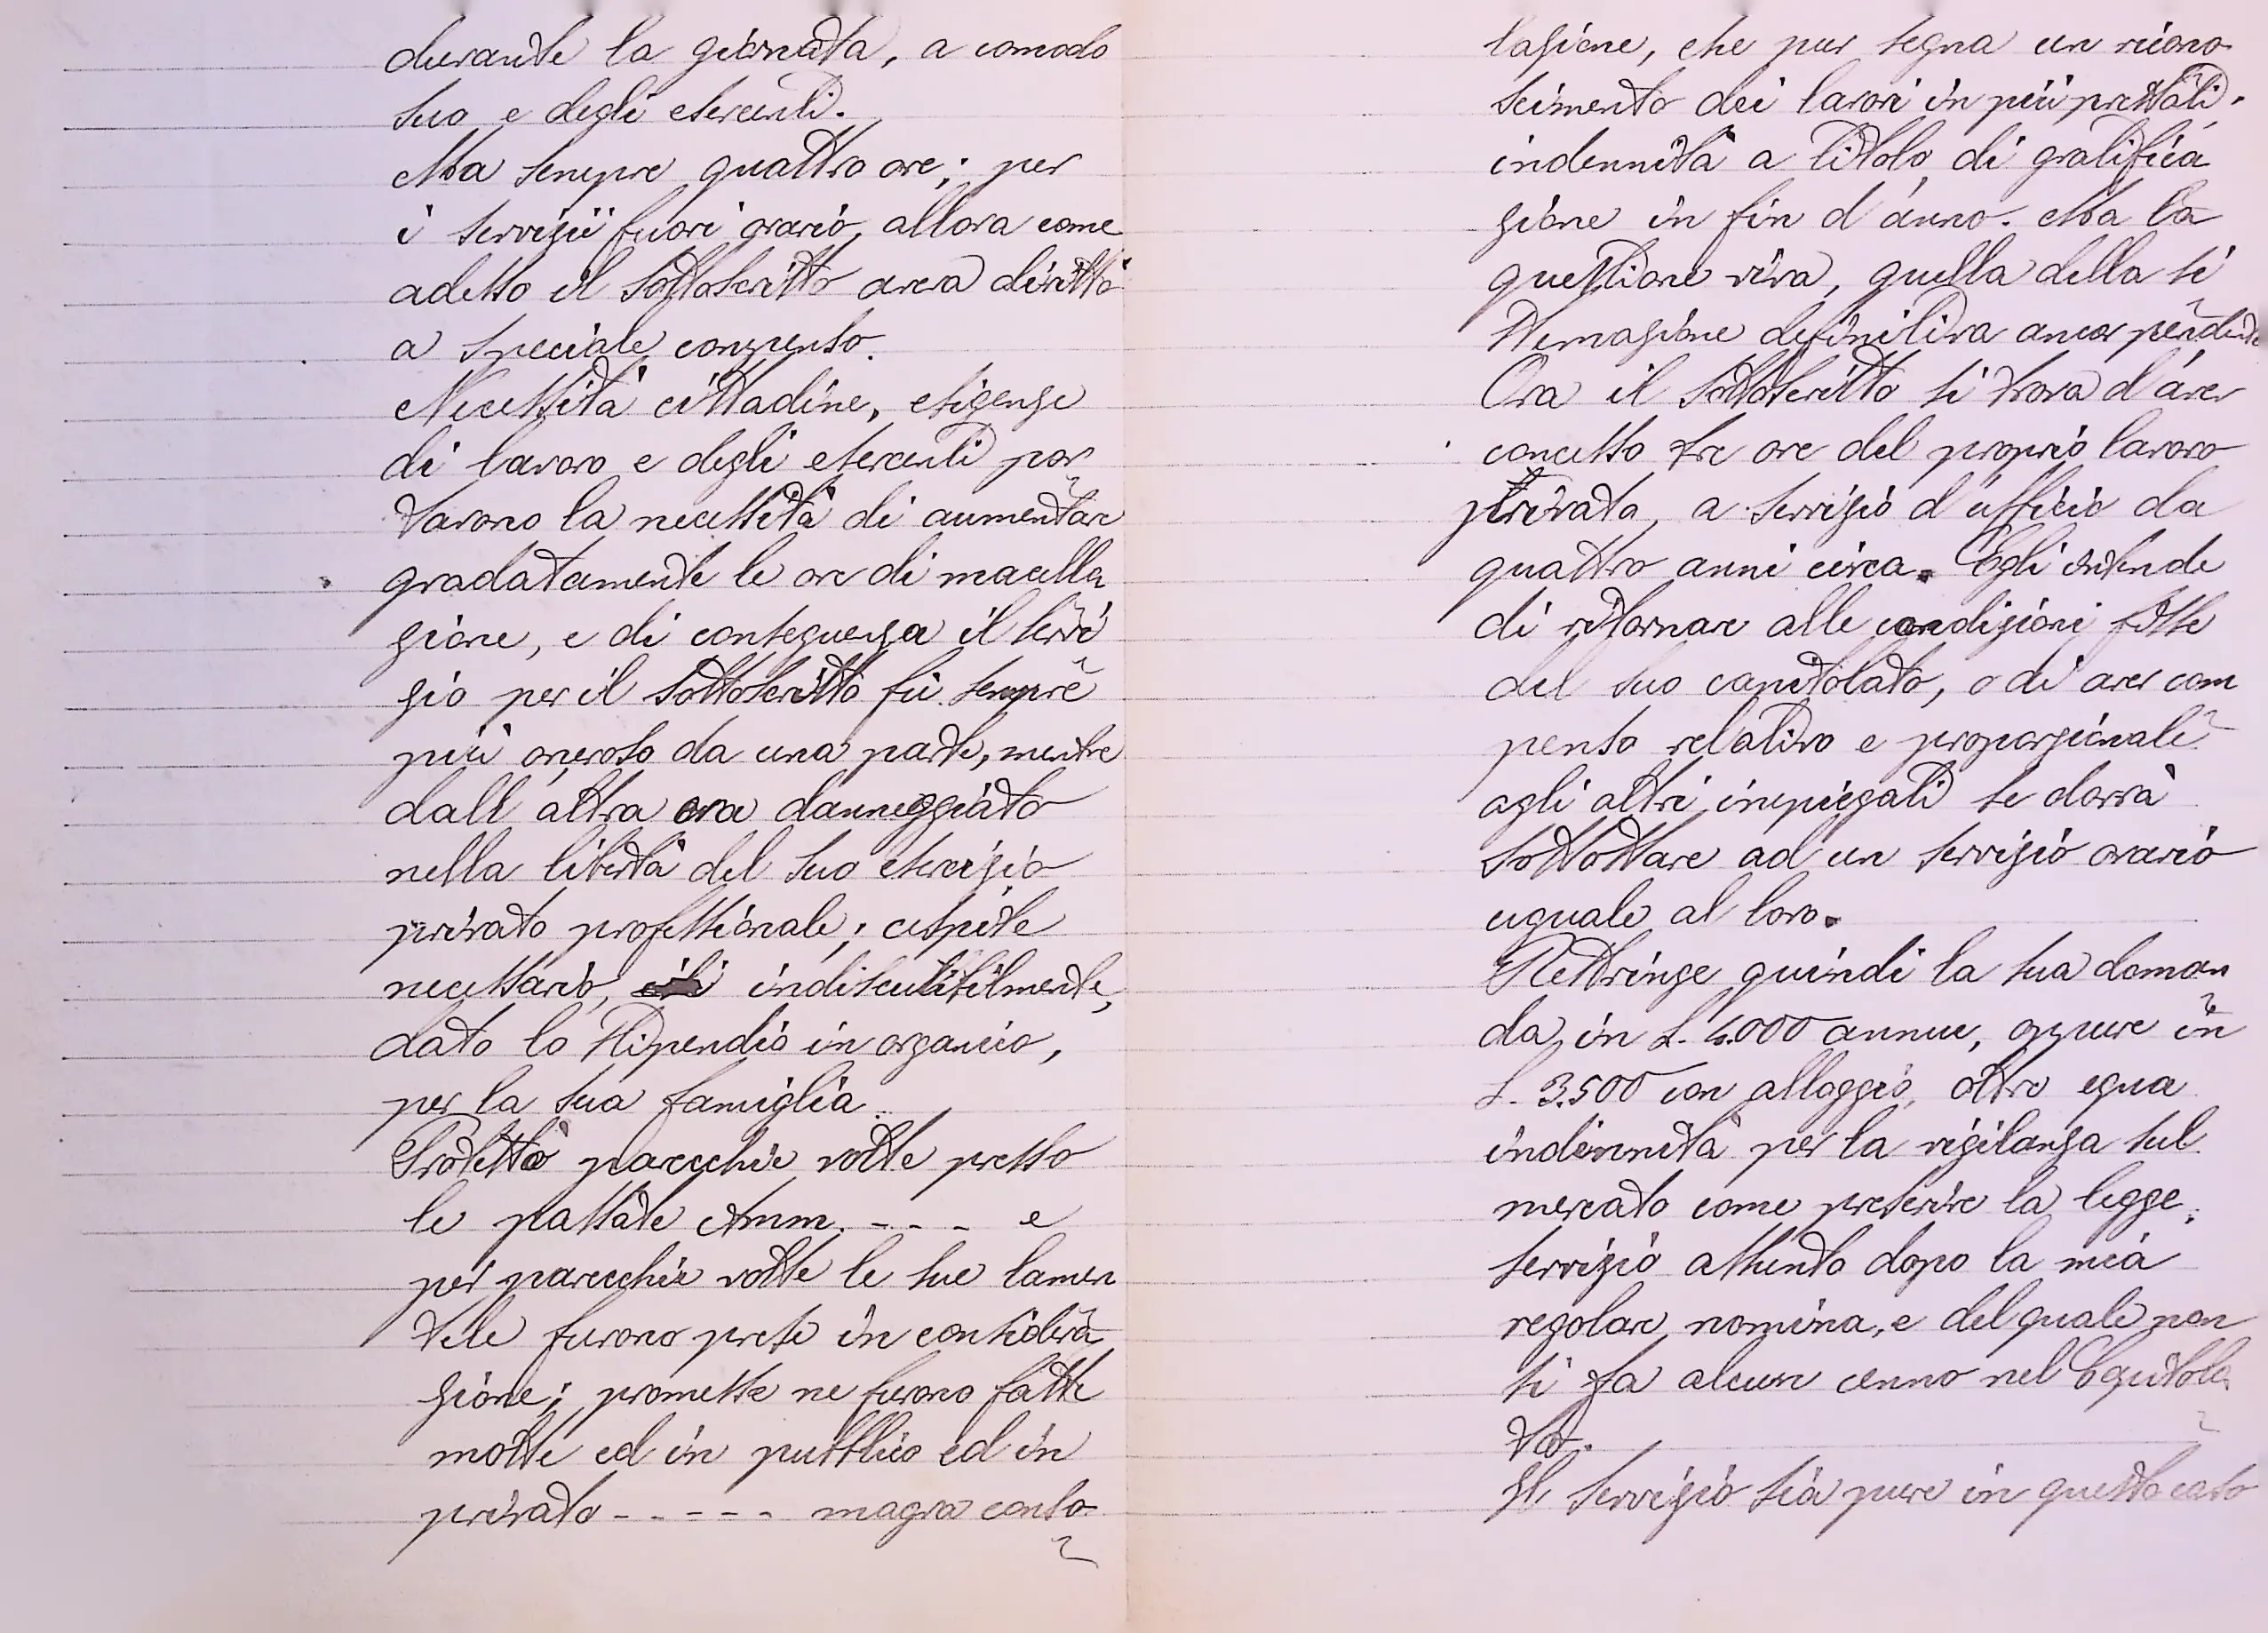 durante la giornata, a comodo
suo e degli esercenti.
Ma sempre quattro ore; per
i servizii fuori orario, allora come
adesso il sottoscritto aveva diritto
a speciale compenso.
Necessità cittadine, esigenze
di lavoro e degli esercenti por
tarono la necessità di aumentare
gradatamente le ore di macella
zione, e di conseguenza il servi
zio per il sottoscritto fu sempre
più oneroso da una parte, mentre
dall'altra era danneggiato
nella libertà del suo esercizio
privato professionale; cespite
necessario, indiscutibilmente,
dato lo stipendio in organico,
per la sua famiglia.
Protestò parecchie volte presso
le passate Amm. - - - e
per parecchie volte le sue lamen
tele furono prese in considera
zione; promesse ne furono fatte
molte ed in pubblico ed in
privato - - - - - magra conso
lazione, che pur segna un ricono
scimento dei lavori in più prestati,
indennità a titolo di gratifica
zione in fin d'anno. Ma la
questione viva, quella della si
stemazione definitiva ancor pendente
Ora il sottoscritto si trova d'aver
concesso tre ore del proprio lavoro
privato, a servizio d'ufficio da
quattro anni circa. Egli intende
di ritornare alle condizioni fisse
del suo capitolato, o di aver com
penso relativo e proporzionale
agli altri impiegati se dovrà
sottostare ad un servizio orario
uguale al loro.
Restringe quindi la sua doman
da in L. 4.000 annue, oppure in
L. 3.500 con alloggio, oltre equa
indennità per la vigilanza sul
mercato come prescrive la legge;
servizio assunto dopo la mia
regolare nomina, e del quale non
si fa alcun cenno nel Capitola
to.
Il servizio sia pure in questo caso